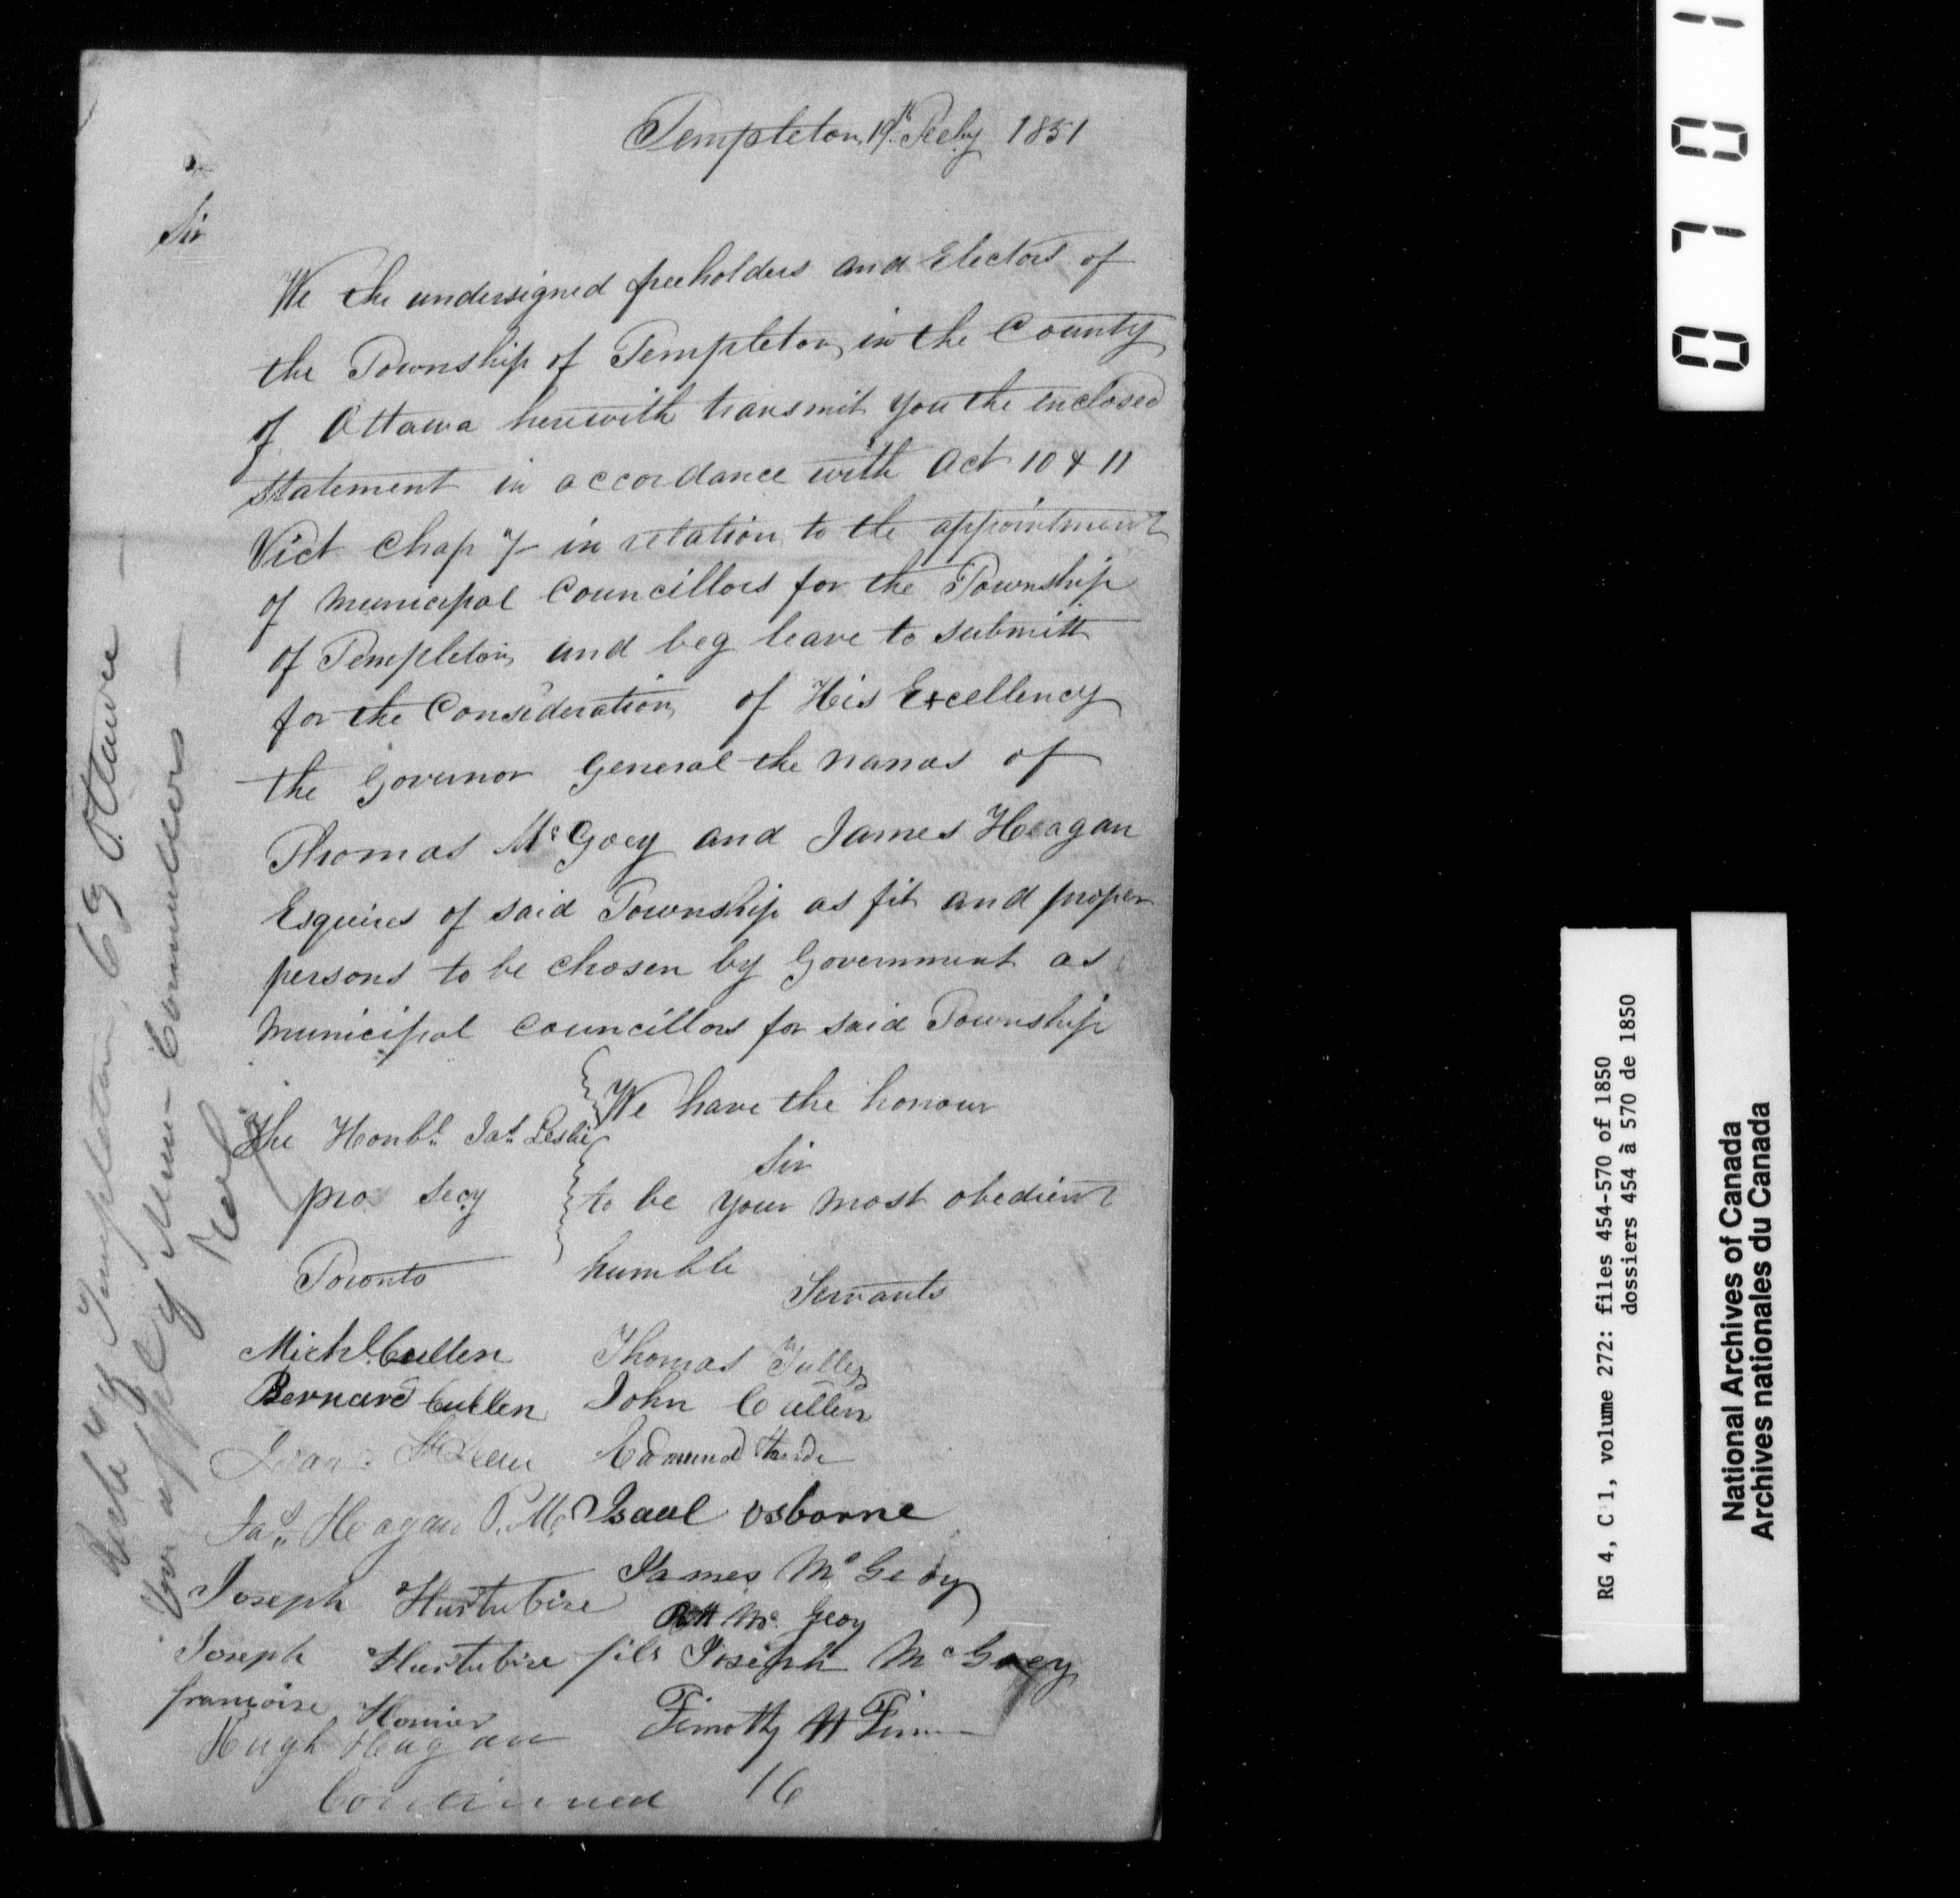 Templeton 19th Feby 1851
Sir
We the undersigned freeholders and Electors of
the Township of Templeton in the County
of Ottawa herewith transmit you the enclosed
statement in accordance with Act 10 & 11
Vict Chap 7 in relation to the appointment
of Municipal Councillors for the Township
of Templeton and beg leave to submitt
for the Consideration of His Excellency
the Governor General the names of
Thomas McGoey and James Heagan
Esquires of said Township as fit and proper
persons to be chosen by Government as
Municipal Councillors for said Township
We have the honour
Sir
to be your most obedient
humble
Servants
The Honble Jas Leslie
pro secy
Toronto
Michl Cullen
Bernard Cullen
Jas Heagan P.M.
Joseph Hurtubise
Joseph Hurtubise fils
francoise
Hugh Heagan
Thomas Tulley
John Cullen
Edmund
Isaul Osborne
James McGeoy
Patt Mc Geoy
Joseph McGoey
Timothy
Continued 16
Templeton Cy Ottawa
for appt of Mun Councillors
0701
RG 4, C 1, volume 272: files 454-570 of 1850
dossiers 454 à 570 de 1850
National Archives of Canada
Archives nationales du Canada